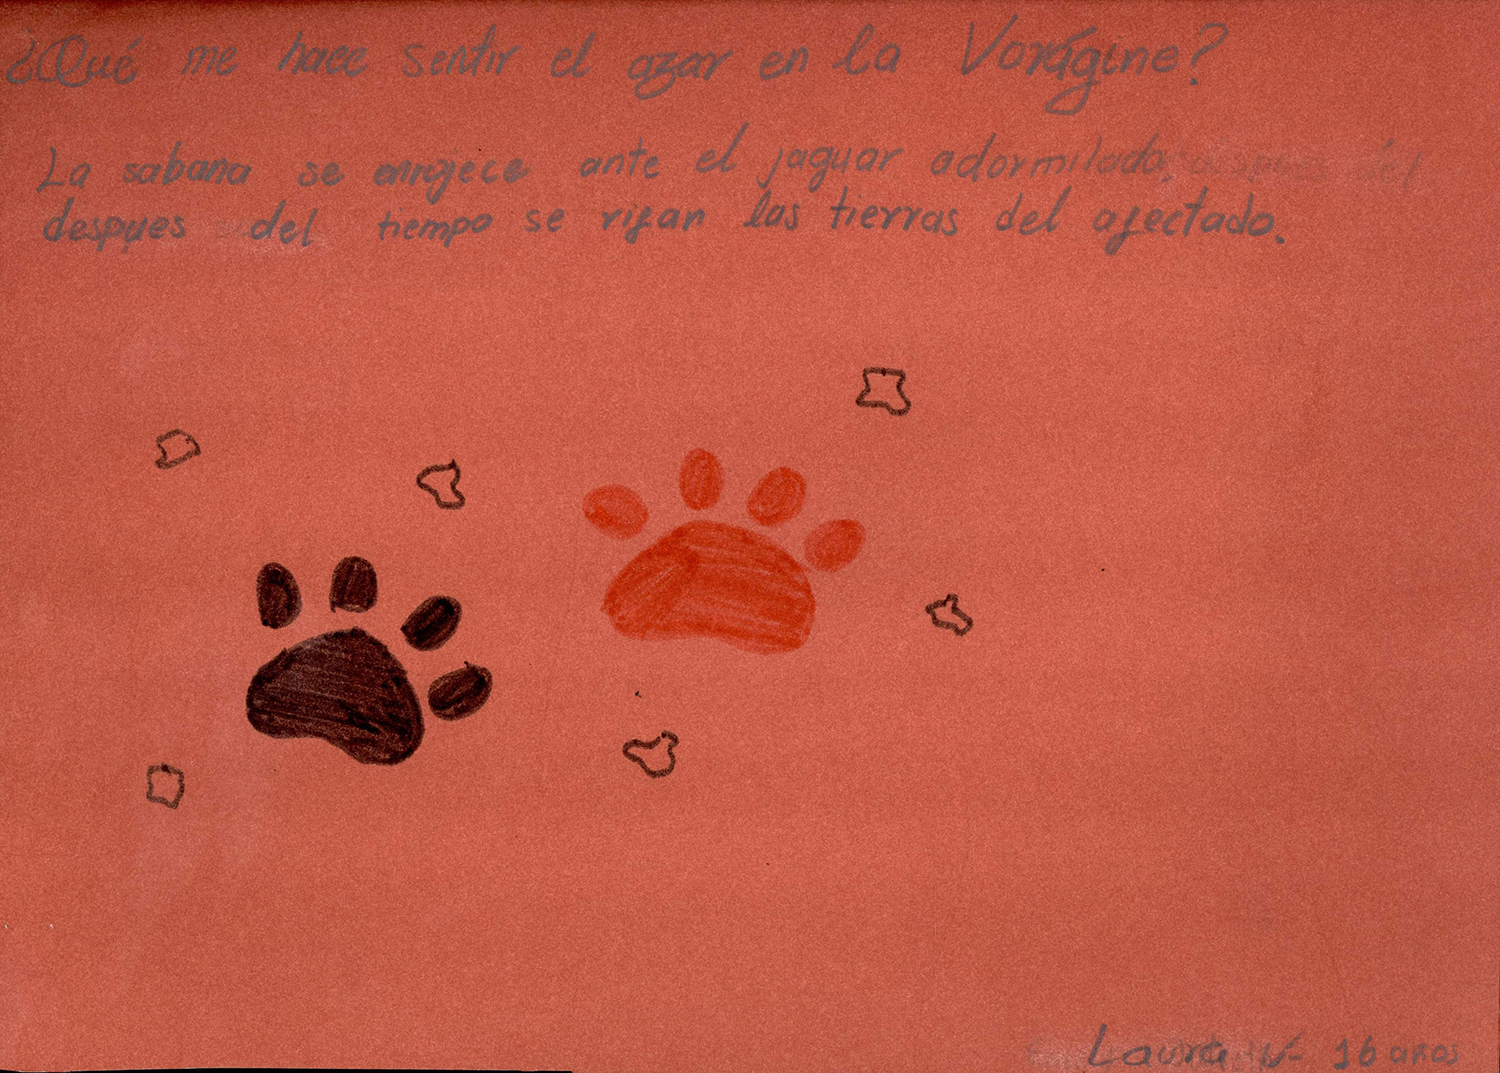 ¿Qué me hace sentir el azar en la Vorágine?
La sabana se enrojece ante el jaguar adormilado,
despues del tiempo se rifan las tierras del afectado.
Laura 16 años